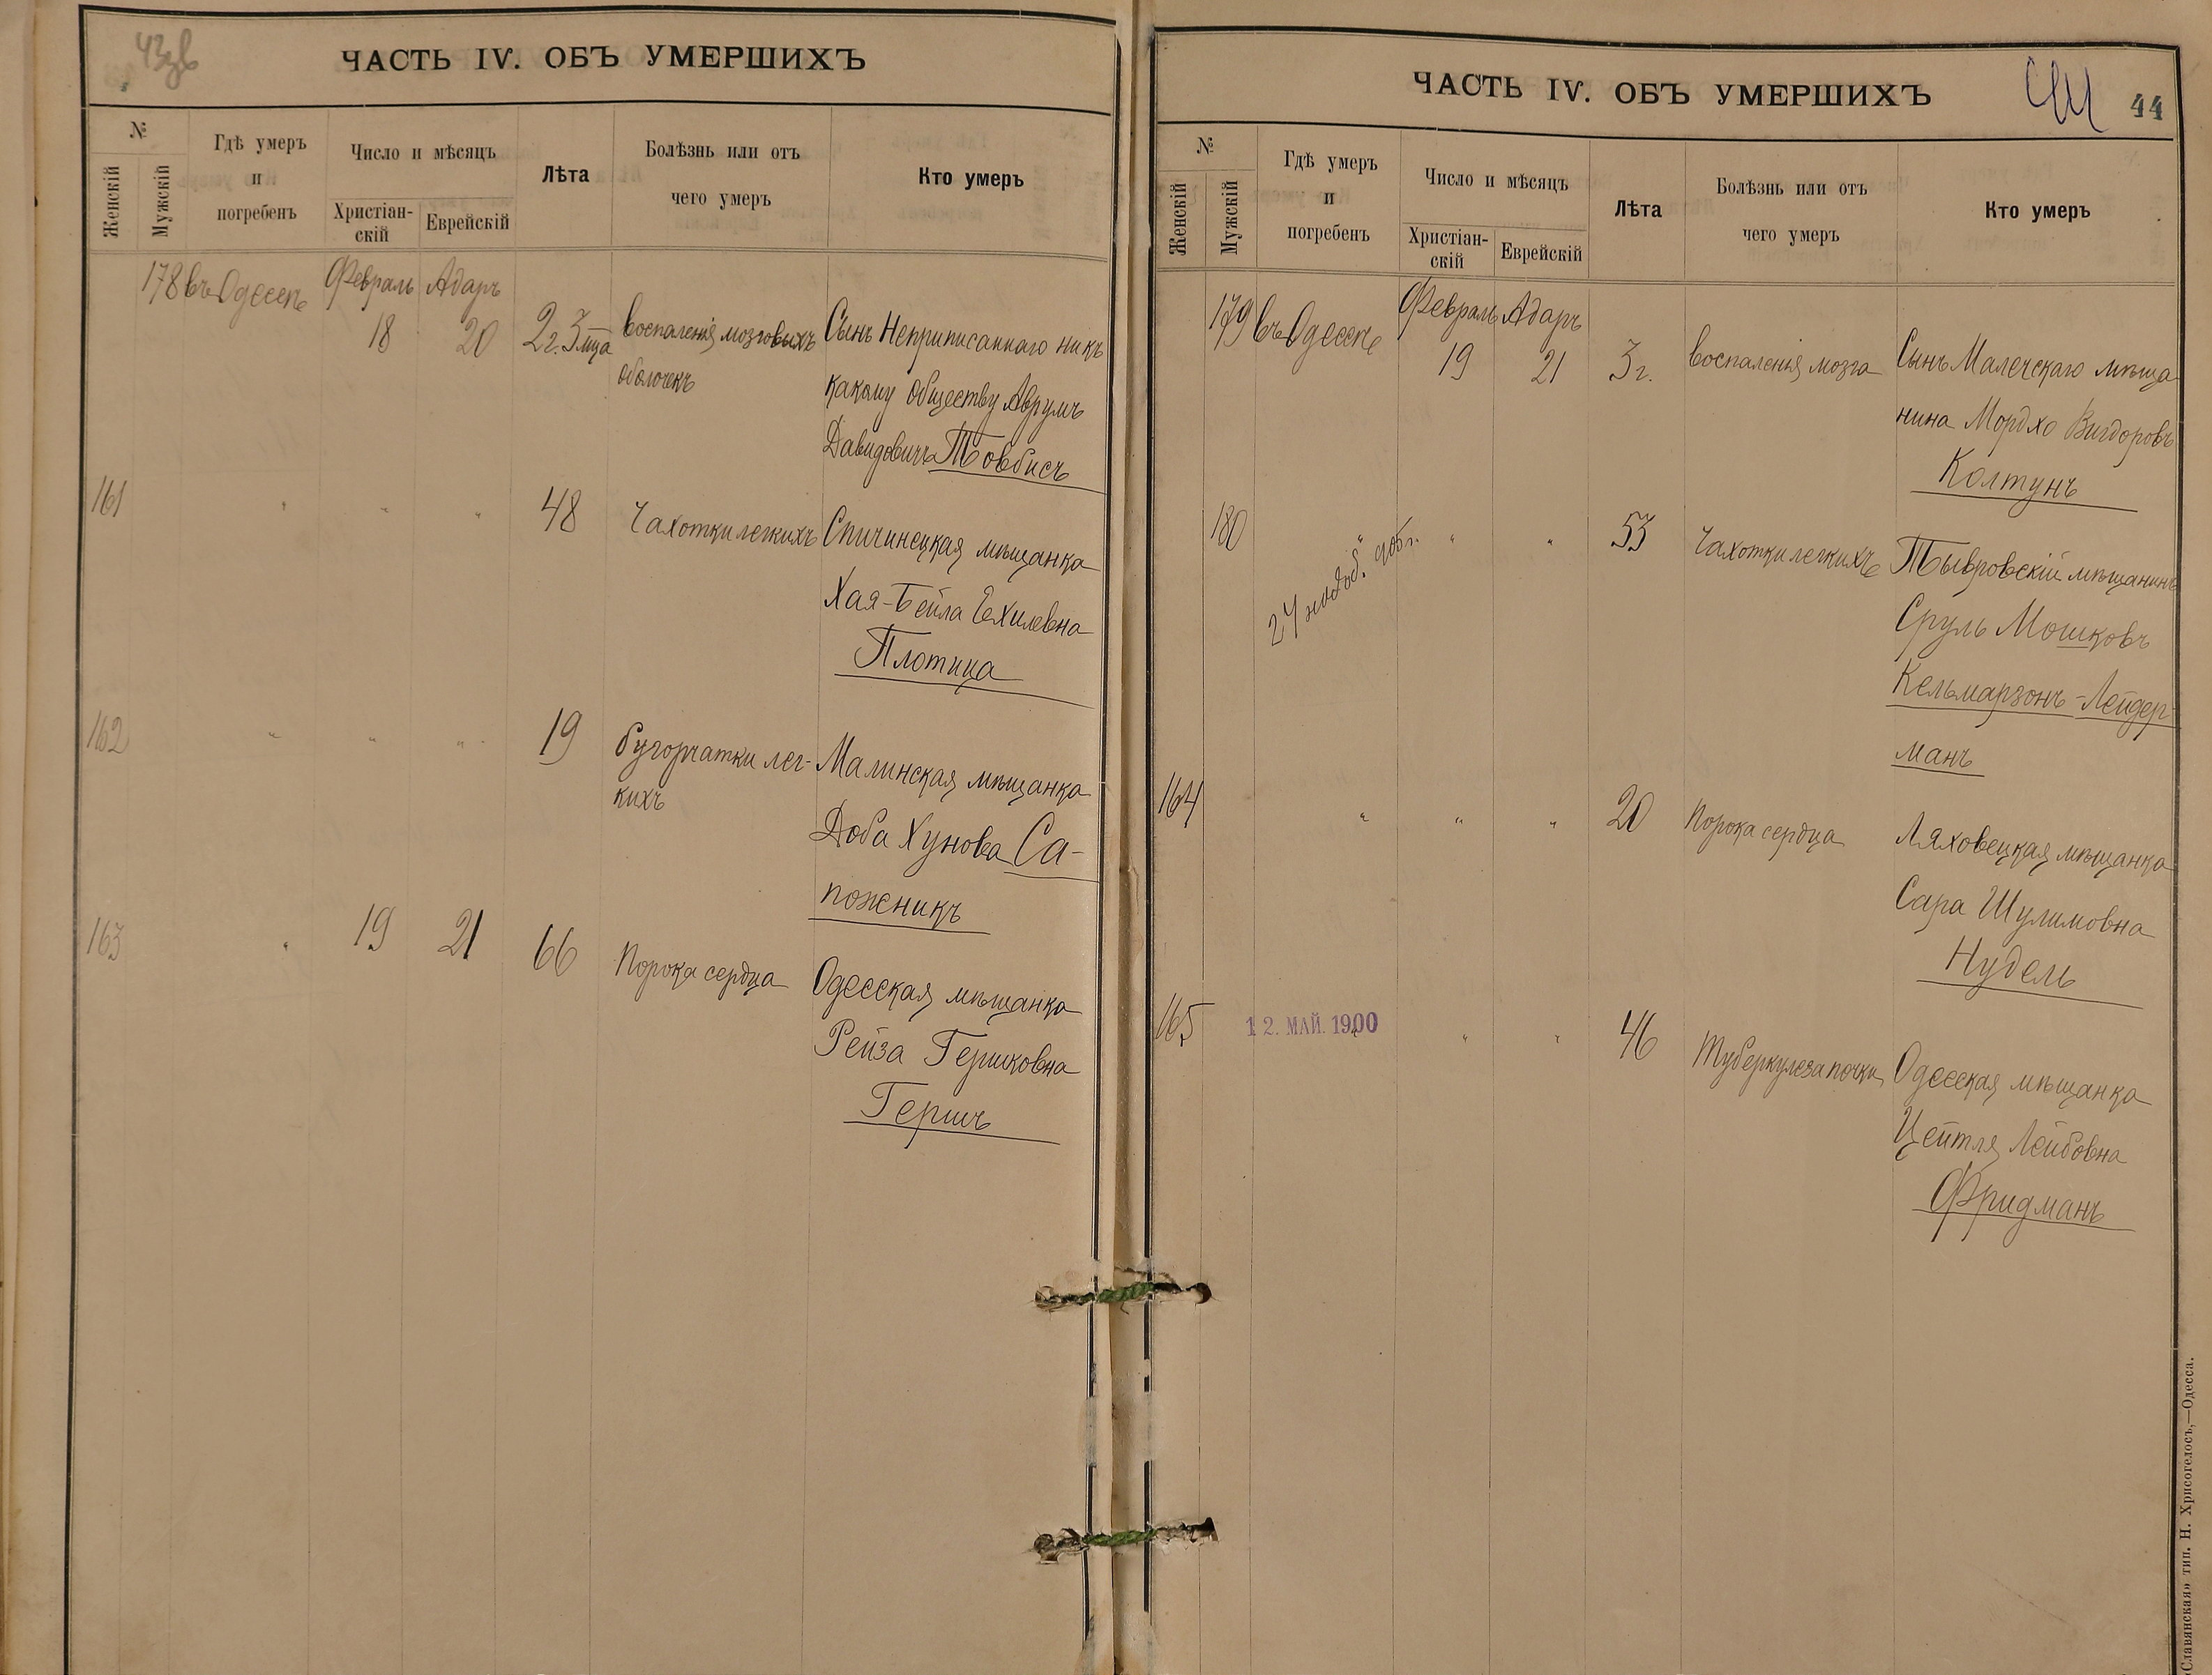 43об
ЧАСТЬ IV. ОБЪ УМЕРШИХЪ
№
Женскій
Мужскій
Гдѣ умеръ
и
погребенъ
Число и мѣсяцъ
Христіан-
скій
Еврейскій
Лѣта
Болѣзнь или отъ
чего умеръ
Кто умеръ
178 въ Одессѣ Февраль Адаръ
18 20 2г. 3 м-ца воспаленія мозговыхъ Сынъ Неприписаннаго ник
оболочекъ какому обществу Аврумъ
Давидовичъ Товбисъ
161 " " " 48 Чахотки легкихъ Спичинецкая мѣщанка
Хая-Бейла Ехилевна
Плотица
162 " " " 19 бугорчатки лег- Малинская мѣщанка
кихъ Доба Хунова Са-
пожникъ
163 " 19 21 66 Порока сердца Одесская мѣщанка
Рейза Гершковна
Гершъ
ЧАСТЬ IV. ОБЪ УМЕРШИХЪ
44
№
Женскій
Мужскій
Гдѣ умеръ
и
погребенъ
Число и мѣсяцъ
Христіан-
скій
Еврейскій
Лѣта
Болѣзнь или отъ
чего умеръ
Кто умеръ
179 въ Одессѣ Февраль Адаръ
19 21 3г. воспаленія мозга Сынъ Малечскаго мѣща
нина Мордхо Вигдоровъ
Колтунъ
180 " " " 53 Чахотки легкихъ Тывровскій мѣщанинъ
Сруль Мошковъ
Кельмарзонъ-Лейдер-
манъ
164 " " " 20 Порока сердца Ляховецкая мѣщанка
Сара Шулимовна
Нудель
165 " " " 46 Туберкулеза почки Одесская мѣщанка
12. МАЙ. 1900
Цейтля Лейбовна
Фридманъ
Славянская» тип. Н. Хрисогелосъ,—Одесса.